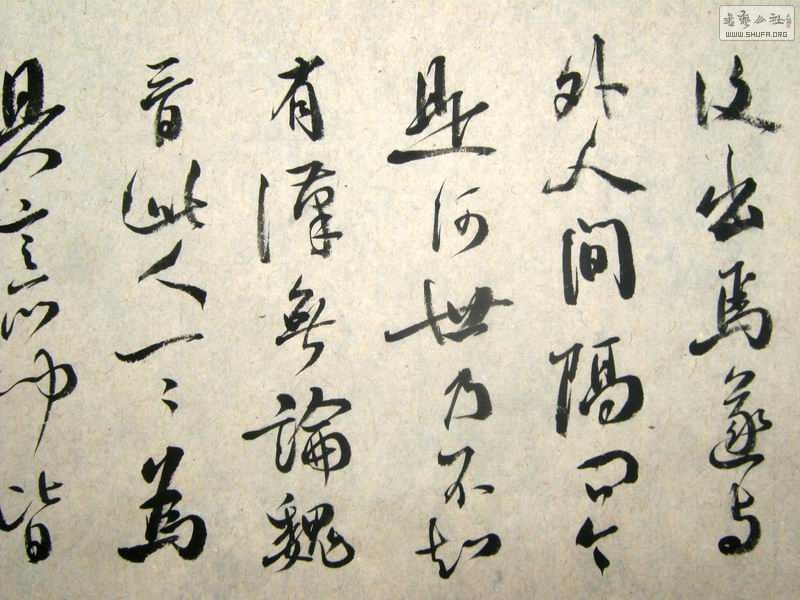 復出焉遂与
外人間隔問今
是何世乃不知
有漢無論魏
晉此人一〻為
具言所聞皆
書藝公社
WWW.SHUFA.ORG